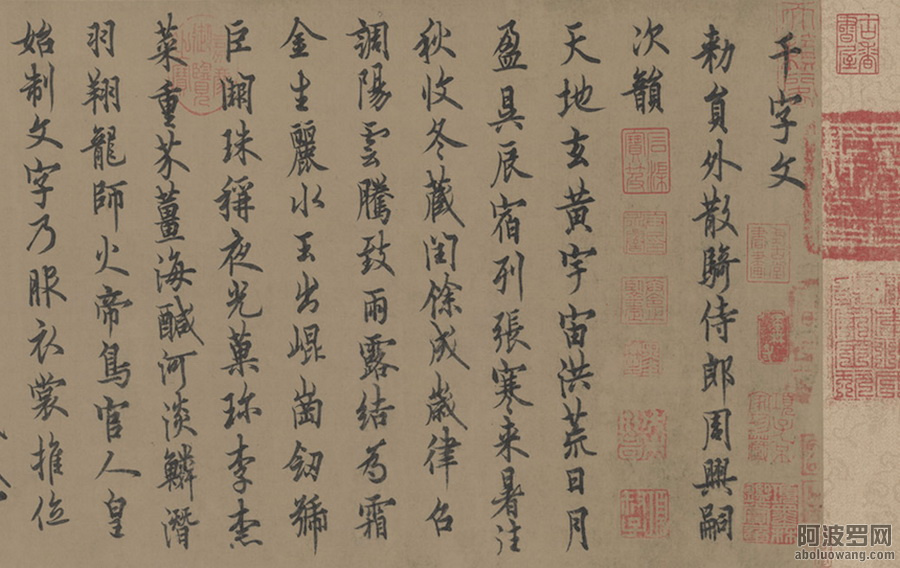 千字文
勑員外散騎侍郎周興嗣
次韻
天地玄黃宇宙洪荒日月
盈昃辰宿列張寒来暑往
秋收冬藏閏餘成歲律召
調陽雲騰致雨露結為霜
金生麗水玉出崐崗劒號
巨闕珠稱夜光菓珎李柰
菜重芥薑海醎河淡鱗潛
羽翔龍師火帝鳥官人皇
始制文字乃服衣裳推位
阿波罗网
aboluowang.com